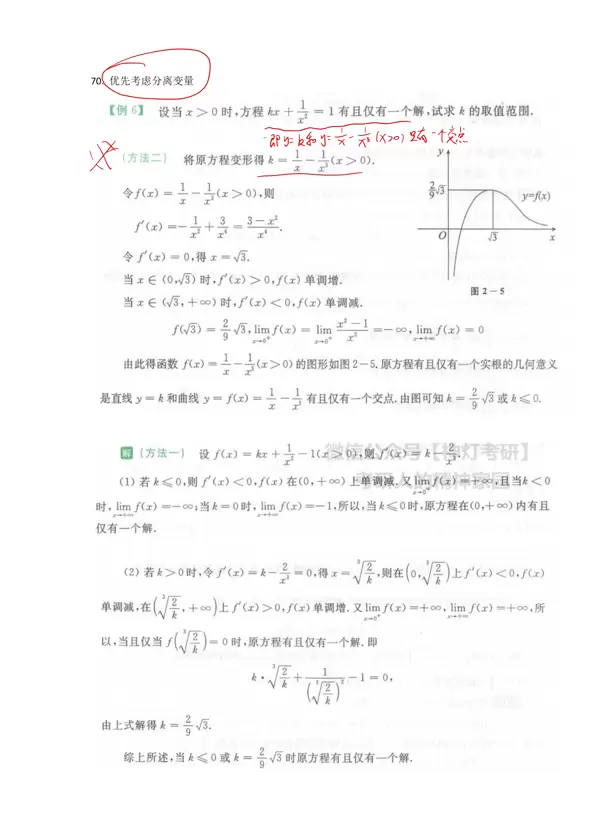 70. 优先考虑分离变量
【例 6】 设当 x > 0 时,方程 kx + 1/x² = 1 有且仅有一个解,试求 k 的取值范围.
即 y=k 和 y=1/x - 1/x³ (x>0) 只有一个交点
(方法二) 将原方程变形得 k = 1/x - 1/x³ (x > 0).
令 f(x) = 1/x - 1/x³ (x > 0),则
f′(x) = -1/x² + 3/x⁴ = (3 - x²)/x⁴.
令 f′(x) = 0,得 x = √3.
当 x ∈ (0,√3) 时,f′(x) > 0,f(x) 单调增.
当 x ∈ (√3, +∞) 时,f′(x) < 0,f(x) 单调减.
y
2/9 √3
y=f(x)
O
√3
x
图 2-5
f(√3) = 2/9 √3, lim_{x→0⁺} f(x) = lim_{x→0⁺} (x² - 1)/x³ = -∞, lim_{x→+∞} f(x) = 0
由此得函数 f(x) = 1/x - 1/x³ (x > 0) 的图形如图 2-5. 原方程有且仅有一个实根的几何意义
是直线 y = k 和曲线 y = f(x) = 1/x - 1/x³ 有且仅有一个交点. 由图可知 k = 2/9 √3 或 k ⩽ 0.
微信公众号【神灯考研】
考研人的精神家园
解 (方法一) 设 f(x) = kx + 1/x² - 1(x > 0),则 f′(x) = k - 2/x³.
(1) 若 k ⩽ 0,则 f′(x) < 0,f(x) 在(0,+∞) 上单调减. 又 lim_{x→0⁺} f(x) = +∞,且当 k < 0
时, lim_{x→+∞} f(x) = -∞;当 k = 0 时, lim_{x→+∞} f(x) = -1,所以,当 k ⩽ 0 时,原方程在(0,+∞) 内有且
仅有一个解.
(2) 若 k > 0 时,令 f′(x) = k - 2/x³ = 0,得 x = ∛(2/k),则在 (0, ∛(2/k)) 上 f′(x) < 0,f(x)
单调减,在 (∛(2/k), +∞) 上 f′(x) > 0,f(x) 单调增. 又 lim_{x→0⁺} f(x) = +∞, lim_{x→+∞} f(x) = +∞,所
以,当且仅当 f(∛(2/k)) = 0 时,原方程有且仅有一个解. 即
k · ∛(2/k) + 1/(∛(2/k))² - 1 = 0,
由上式解得 k = 2/9 √3.
综上所述,当 k ⩽ 0 或 k = 2/9 √3 时原方程有且仅有一个解.